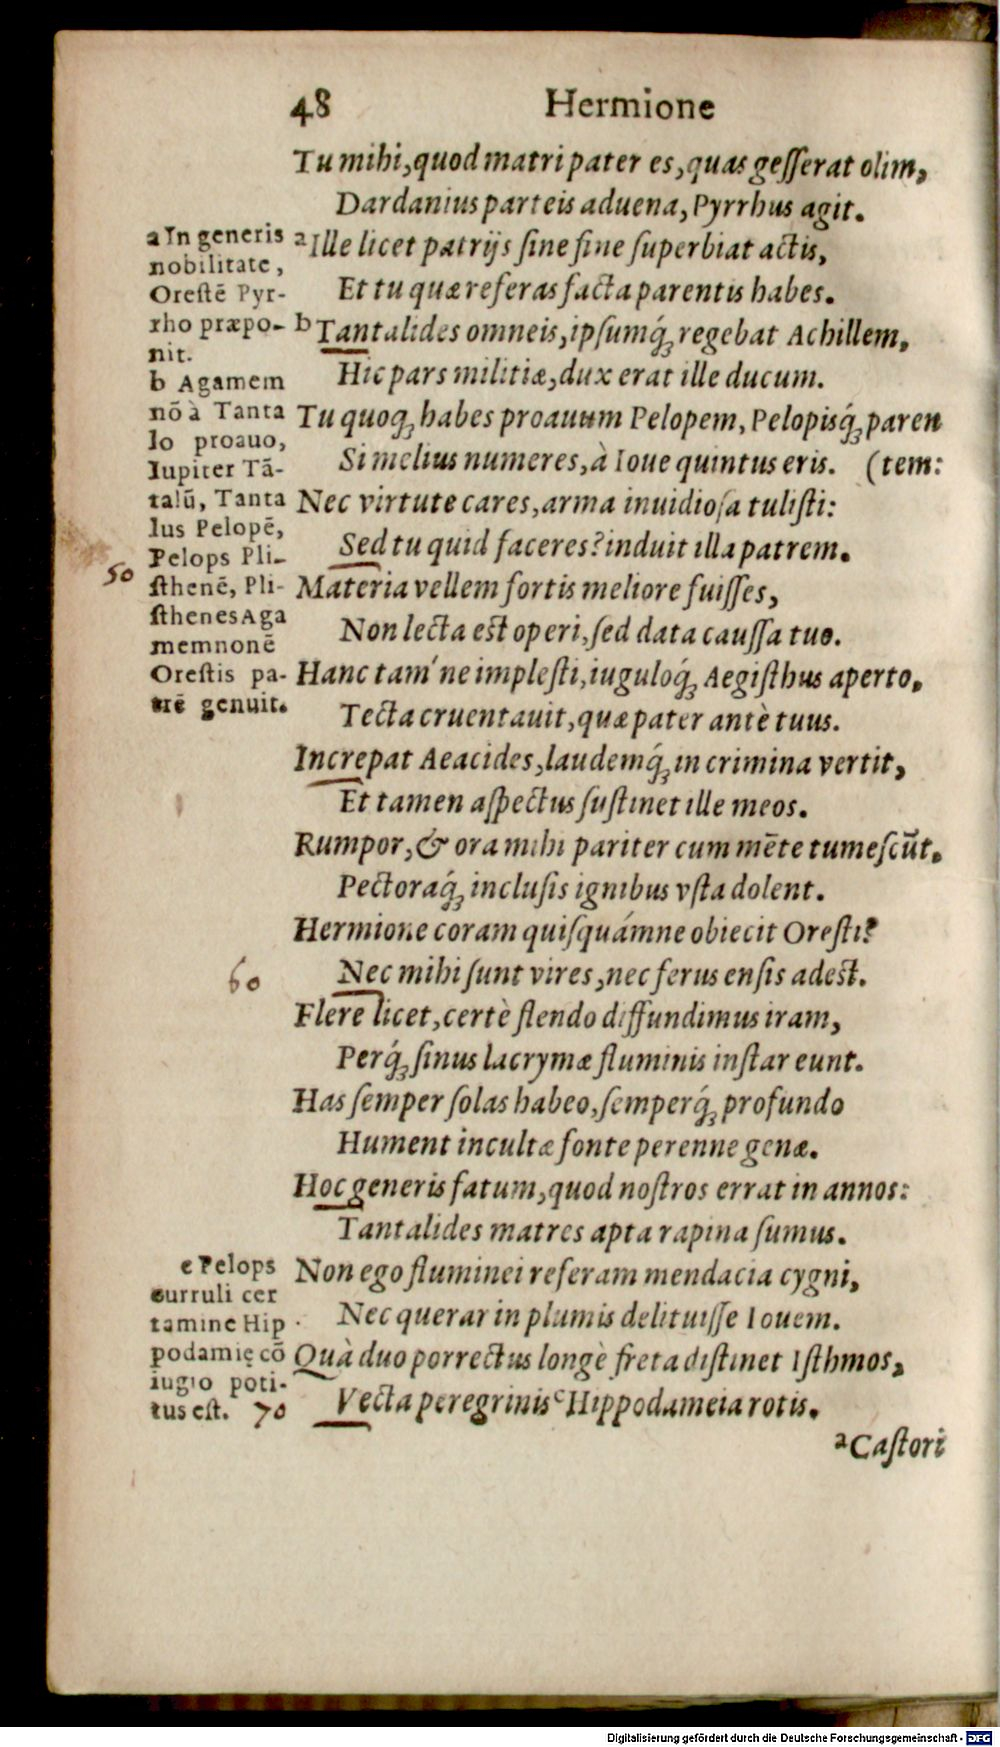 48 Hermione
Tu mihi, quod matri pater es, quas gesserat olim,
Dardanius parteis aduena, Pyrrhus agit.
a Ille licet patrijs sine fine superbiat actis,
Et tu quæ referas facta parentis habes.
b Tantalides omneis, ipsumq́; regebat Achillem,
Hic pars militiæ, dux erat ille ducum.
Tu quoq; habes proauum Pelopem, Pelopisq́; paren
Si melius numeres, à Ioue quintus eris. (tem:
Nec virtute cares, arma inuidiosa tulisti:
Sed tu quid faceres? induit illa patrem.
Materia vellem fortis meliore fuisses,
Non lecta est operi, sed data caussa tuo.
Hanc tam'ne implesti, iuguloq́; Aegisthus aperto,
Tecta cruentauit, quæ pater antè tuus.
Increpat Aeacides, laudemq́; in crimina vertit,
Et tamen aspectus sustinet ille meos.
Rumpor, & ora mihi pariter cum mēte tumescūt,
Pectoraq́; inclusis ignibus vsta dolent.
Hermione coram quisquámne obiecit Oresti?
Nec mihi sunt vires, nec ferus ensis adest.
Flere licet, certè flendo diffundimus iram,
Perq́; sinus lacrymæ fluminis instar eunt.
Has semper solas habeo, semperq́; profundo
Hument incultæ fonte perenne genæ.
Hoc generis fatum, quod nostros errat in annos:
Tantalides matres apta rapina sumus.
Non ego fluminei referam mendacia cygni,
Nec querar in plumis delituisse Iouem.
Quà duo porrectus longè freta distinet Isthmos,
Vecta peregrinis c Hippodameia rotis.
a Castori
a In generis
nobilitate,
Orestē Pyr-
rho præpo-
nit.
b Agamem
nō à Tanta
lo proauo,
Iupiter Tā-
talū, Tanta
lus Pelopē,
Pelops Pli-
sthenē, Pli-
sthenes Aga
memnonē
Orestis pa-
trē genuit.
50
60
c Pelops
curruli cer
tamine Hip
podamię cō
iugio poti-
tus est. 70
Digitalisierung gefördert durch die Deutsche Forschungsgemeinschaft - DFG